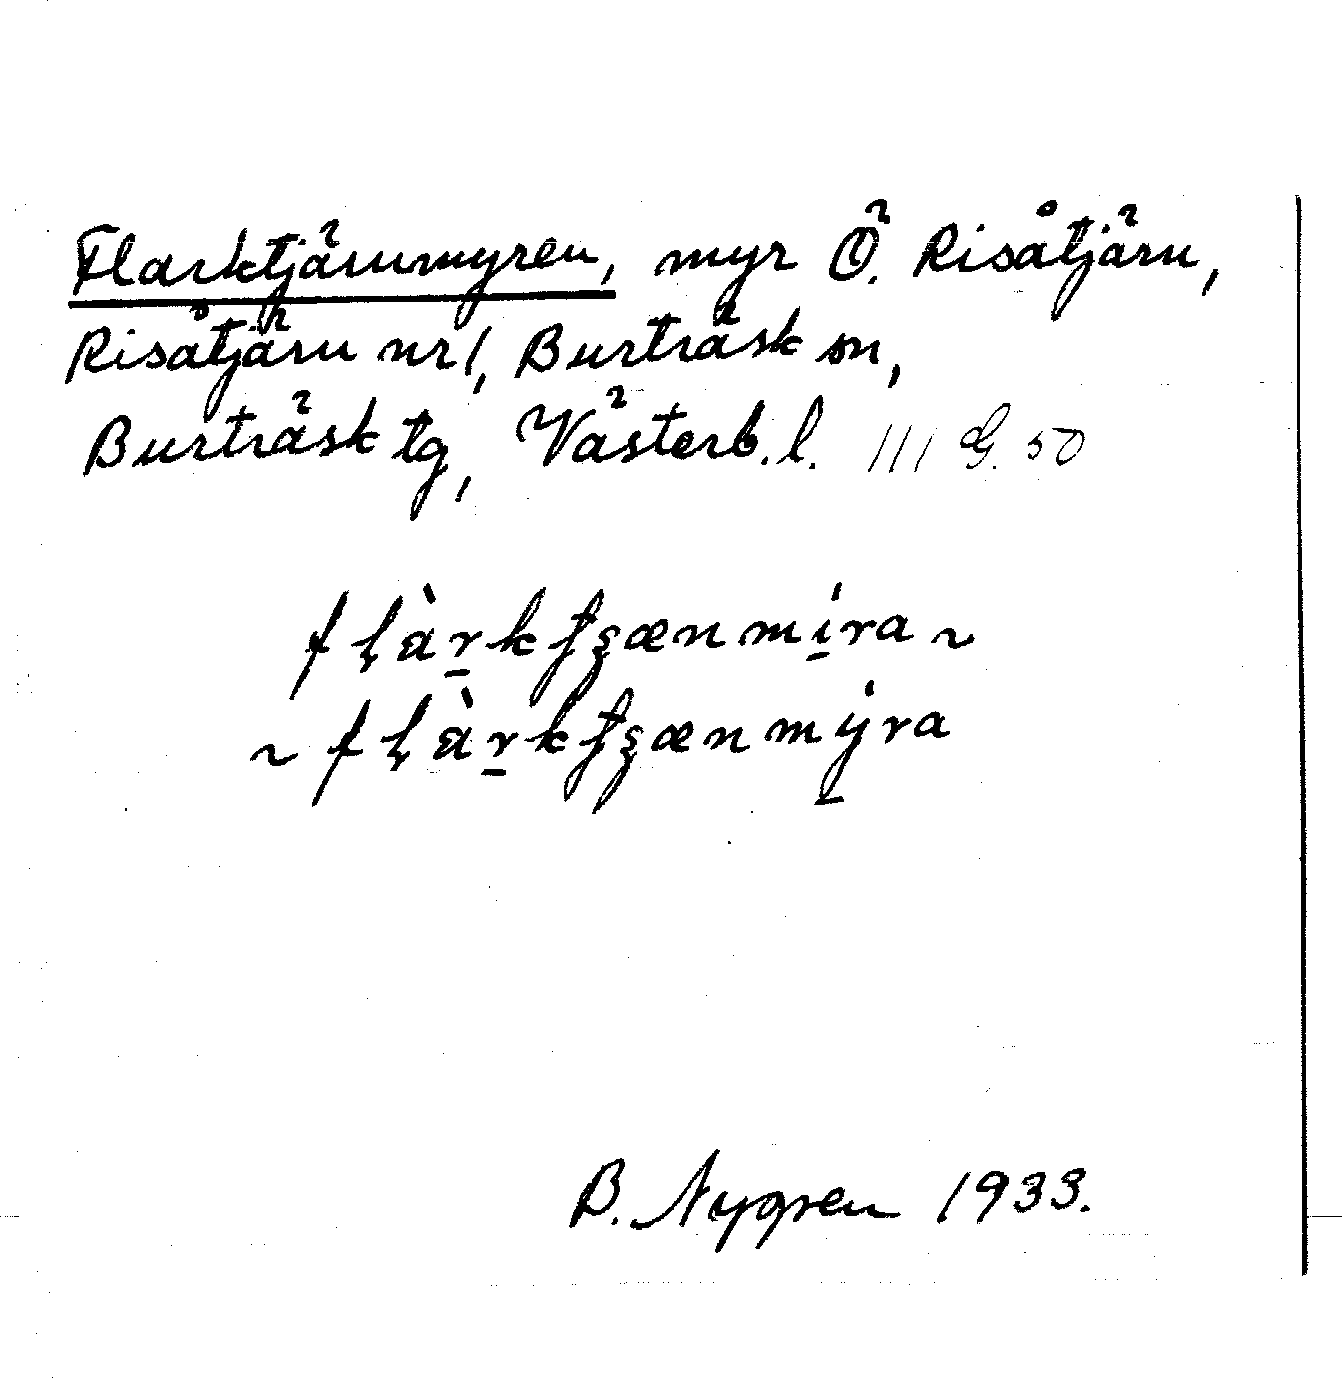 Flarktjärnmyren, myr Ö. Risåtjärn,
Risåtjärn nr 1, Burträsk sn,
Burträsk tg, Västerb. l. III G. 50
B. Nygren 1933.